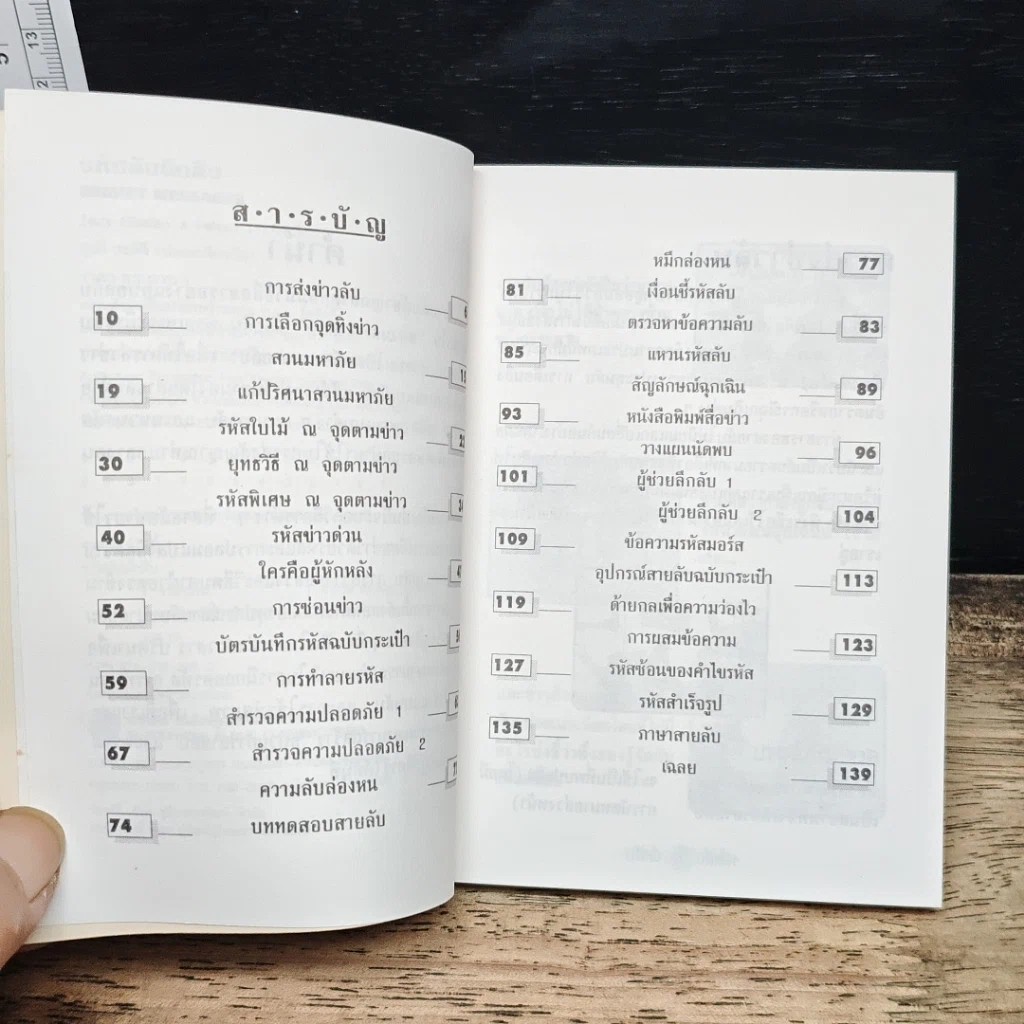 ส·า·ร·บั·ญ
การส่งข่าวลับ
10 การเลือกจุดทิ้งข่าว
สานมหาภัย
19 แก้ปริศนาสานมหาภัย
รหัสใบไม้ ณ จุดตามข่าว
30 ยุทธวิธี ณ จุดตามข่าว
รหัสพิเศษ ณ จุดตามข่าว
40 รหัสข่าวด่วน
ใครคือผู้หักหลัง
52 การซ่อนข่าว
บัตรบันทึกรหัสฉบับกระเป๋า
59 การทำลายรหัส
สำรวจความปลอดภัย 1
67 สำรวจความปลอดภัย 2
ความลับล่องหน
74 บททดสอบสายลับ
หมึกล่องหน 77
81 เงื่อนชี้รหัสลับ
ตรวจหาข้อความลับ 83
85 แหวนรหัสลับ
สัญลักษณ์ฉุกเฉิน 89
93 หนังสือพิมพ์สื่อข่าว
วางแผนนัดพบ 96
101 ผู้ช่วยลึกลับ 1
ผู้ช่วยลึกลับ 2 104
109 ข้อความรหัสมอร์ส
อุปกรณ์สายลับฉบับกระเป๋า 113
119 ด้ายกลเพื่อความว่องไว
การผสมข้อความ 123
127 รหัสซ้อนของคำไขรหัส
รหัสสำเร็จรูป 129
135 ภาษาสายลับ
เฉลย 139